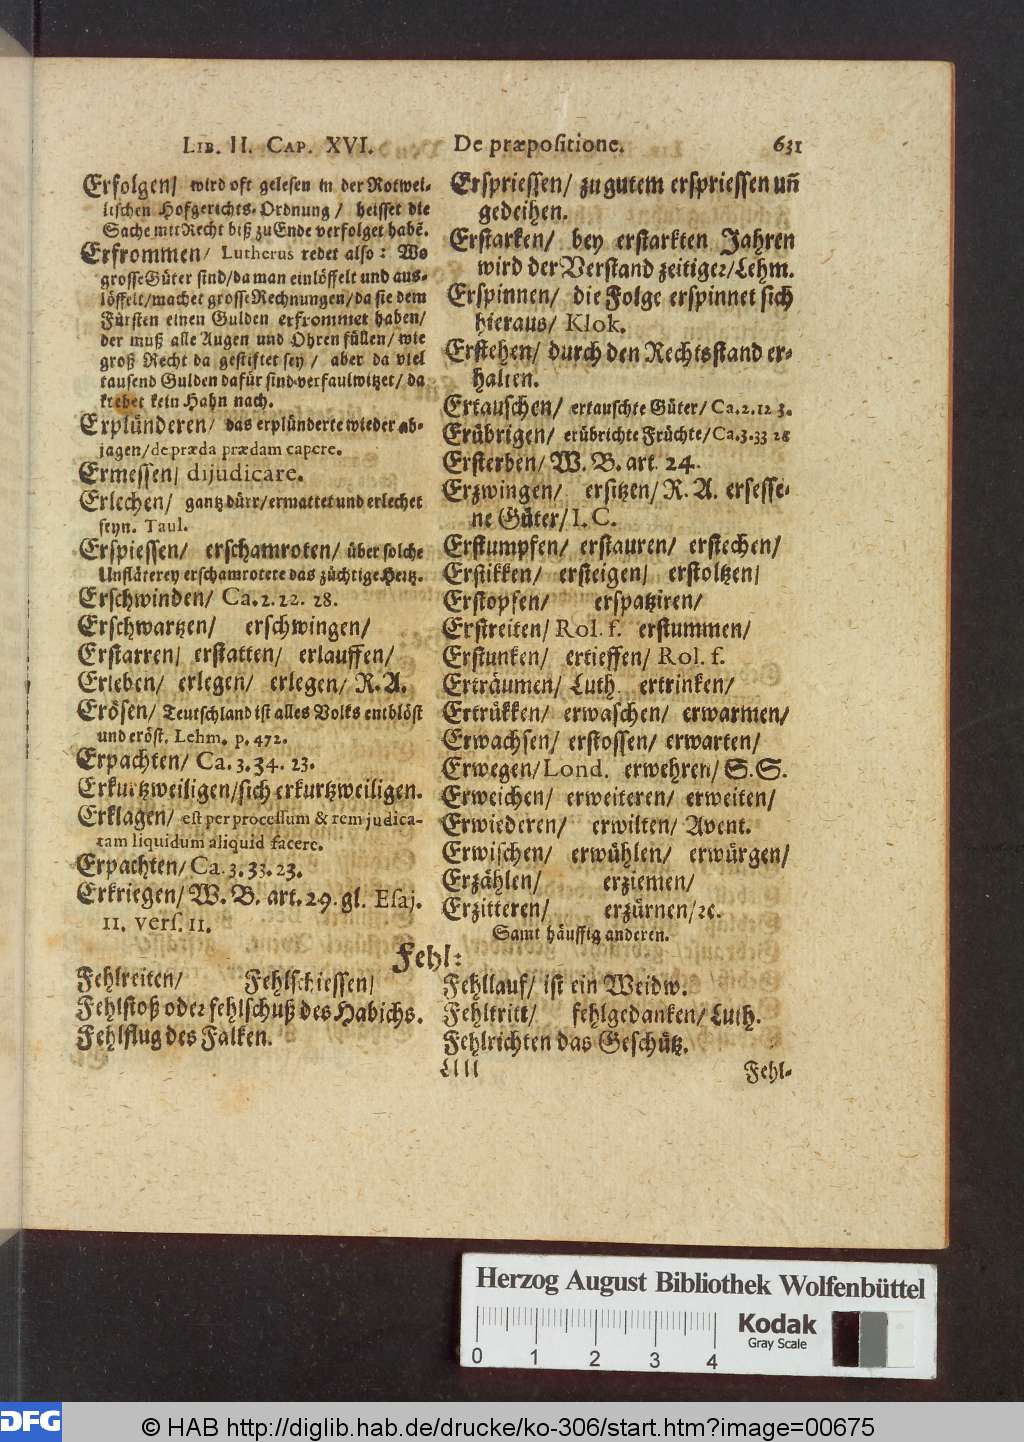 LIB. II. CAP. XVI. De præpositione. 631
Erfolgen/ wird oft gelesen in der Rotwei-
lischen Hofgerichts-Ordnung / heisset die
Sache mit Recht biß zu Ende verfolget habẽ.
Erfrommen/ Lutherus redet also: Wo
grosse Güter sind/da man einlöffelt und aus-
löffelt/machet grosse Rechnungen/da sie dem
Fürsten einen Gulden erfrommet haben/
der muß alle Augen und Ohren füllen/ wie
groß Recht da gestiftet sey / aber da viel
tausend Gulden dafür sind verfaulwitzet/ da
krehet kein Hahn nach.
Erplünderen/ das erplünderte wieder ab-
jagen/de præda prædam capere.
Ermessen/ dijudicare.
Erlechen/ gantz dürr/ermattet und erlechet
seyn. Taul.
Erspiessen/ erschamroten/ über solche
Unfläterey erschamrotete das züchtige Hertz.
Erschwinden/ Ca. 2. 22. 28.
Erschwartzen/ erschwingen/
Erstarren/ erstatten/ erlauffen/
Erleben/ erlegen/ erlegen/ R. A.
Erösen/ Teutschland ist alles Volks entblöst
und eröst. Lehm. p. 472.
Erpachten/ Ca. 3. 34. 23.
Erkurtzweiligen/sich erkurtzweiligen.
Erklagen/ est per processum & rem judica-
tam liquidum aliquid facere.
Erpachten/ Ca. 3. 33. 23.
Erkriegen/ W. B. art. 29. gl. Esaj.
11. vers. 11.
Erspriessen/ zu gutem erspriessen uñ
gedeihen.
Erstarken/ bey erstarkten Jahren
wird der Verstand zeitiger/Lehm.
Erspinnen/ die Folge erspinnet sich
hieraus/ Klok.
Erstehen/ durch den Rechtsstand er-
halten.
Ertauschen/ ertauschte Güter/ Ca. 2. 12 3.
Erübrigen/ erübrichte Früchte/Ca. 3. 33 28
Ersterben/ W. B. art. 24.
Erzwingen/ ersitzen/ R. A. ersesse-
ne Güter/ I. C.
Erstumpfen/ erstauren/ erstechen/
Erstikken/ ersteigen/ erstoltzen/
Erstopfen/ erspatziren/
Erstreiten/ Rol. f. erstummen/
Erstunken/ ertieffen/ Rol. f.
Erträumen/ Luth. ertrinken/
Ertrükken/ erwaschen/ erwarmen/
Erwachsen/ erstossen/ erwarten/
Erwegen/ Lond. erwehren/ S. S.
Erweichen/ erweiteren/ erweiten/
Erwiederen/ erwilten/ Avent.
Erwischen/ erwühlen/ erwürgen/
Erzählen/ erziemen/
Erzitteren/ erzürnen/ꝛc.
Samt häuffig anderen.
Fehl:
Fehlreiten/ Fehlschiessen/
Fehlstoß oder fehlschuß des Habichs.
Fehlflug des Falken.
Fehllauf/ ist ein Weidw.
Fehltritt/ fehlgedanken/ Luth.
Fehlrichten das Geschütz.
Llll Fehl-
Herzog August Bibliothek Wolfenbüttel
Kodak
Gray Scale
0 1 2 3 4
DFG
© HAB http://diglib.hab.de/drucke/ko-306/start.htm?image=00675